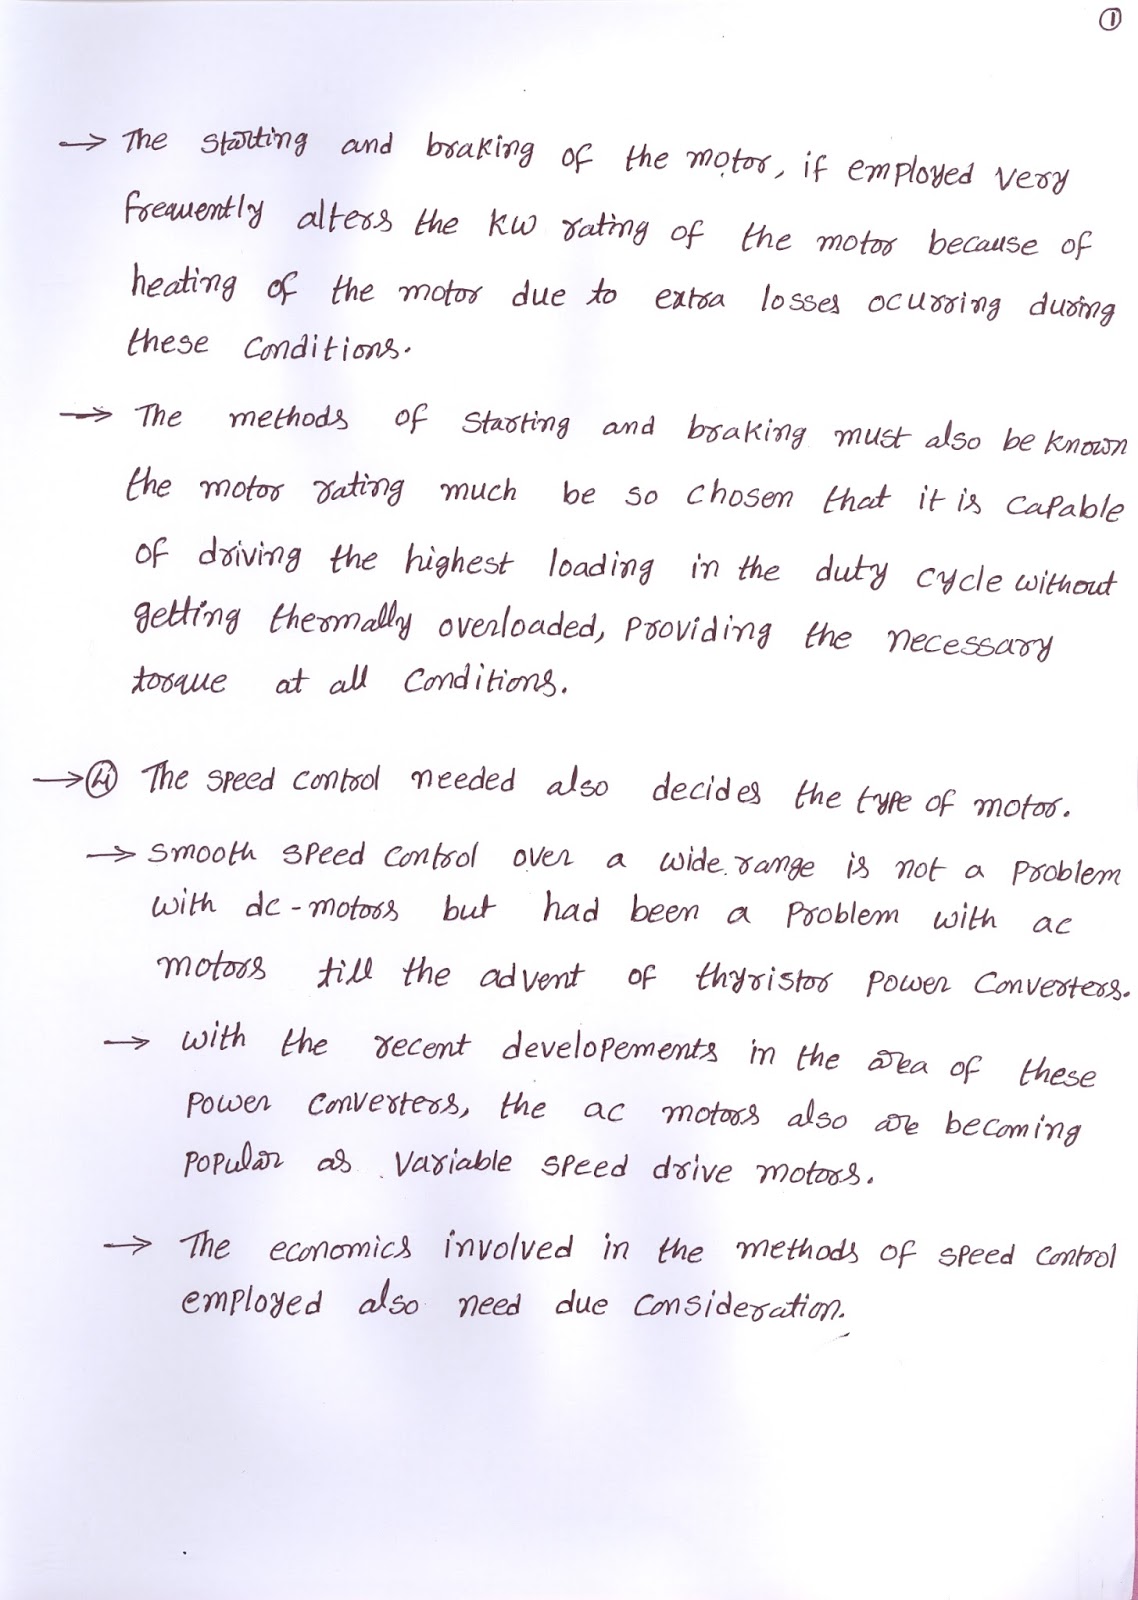 ①
→ The starting and braking of the motor, if employed very
frequently alters the kw rating of the motor because of
heating of the motor due to extra losses ocurring during
these conditions.
→ The methods of starting and braking must also be known
the motor rating much be so chosen that it is capable
of driving the highest loading in the duty cycle without
getting thermally overloaded, providing the necessary
torque at all conditions.
→ ④ The speed control needed also decides the type of motor.
→ smooth speed control over a wide range is not a problem
with dc-motors but had been a problem with ac
motors till the advent of thyristor power converters.
→ with the recent developements in the area of these
power converters, the ac motors also are becoming
popular as variable speed drive motors.
→ The economics involved in the methods of speed control
employed also need due consideration.